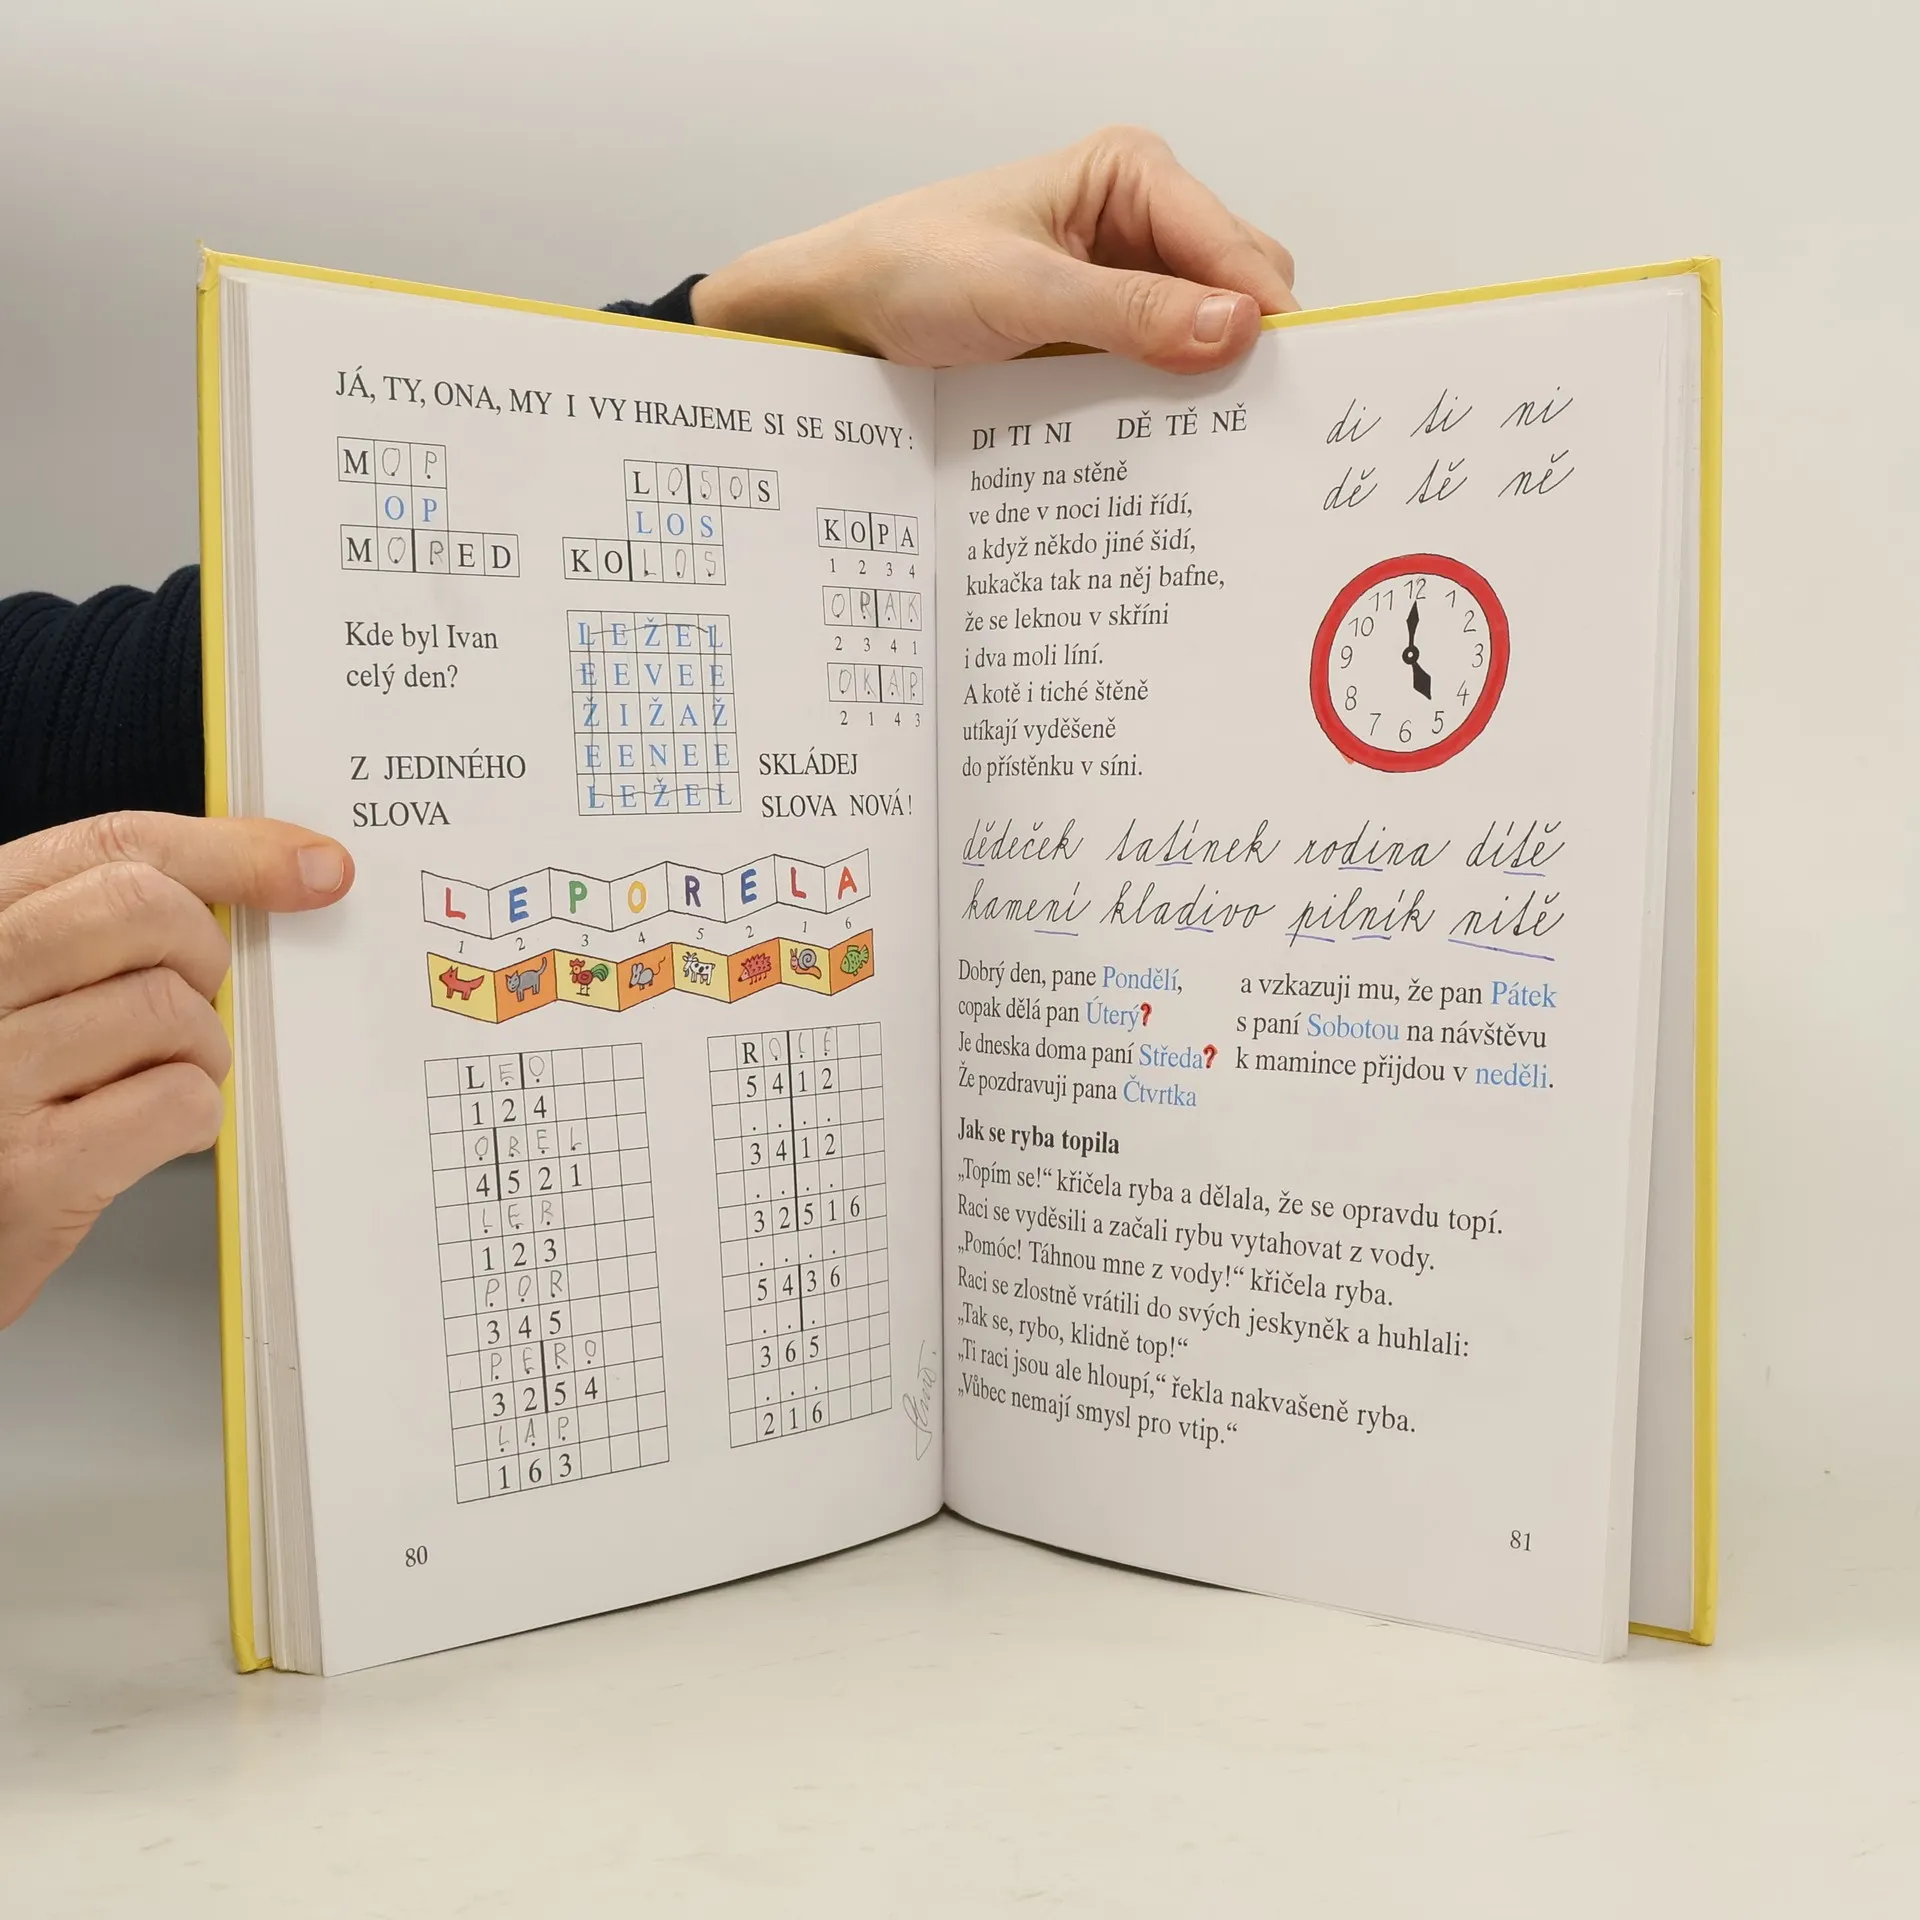 JÁ, TY, ONA, MY I VY HRAJEME SI SE SLOVY:
MOP
OP
MORED
LOSOS
LOS
KOLOS
KOPA
1 2 3 4
ORAK
2 3 4 1
OKAP
2 1 4 3
Kde byl Ivan
celý den?
LEŽEL
EEVEE
ŽIŽAŽ
EENEE
LEŽEL
Z JEDINÉHO
SLOVA
SKLÁDEJ
SLOVA NOVÁ!
LEPORELA
1 2 3 4 5 2 1 6
LEO
1 2 4
OREL
4 5 2 1
LER
1 2 3
POR
3 4 5
PERO
3 2 5 4
LAP
1 6 3
ROLE
5 4 1 2
. . . .
3 4 1 2
. . . .
3 2 5 1 6
. . . .
5 4 3 6
. . .
3 6 5
. . .
2 1 6
80
DI TI NI DĚ TĚ NĚ
di ti ni
dě tě ně
hodiny na stěně
ve dne v noci lidi řídí,
a když někdo jiné šidí,
kukačka tak na něj bafne,
že se leknou v skříni
i dva moli líní.
A kotě i tiché štěně
utíkají vyděšeně
do přístěnku v síni.
12 1 2 3 4 5 6 7 8 9 10 11
dědeček tatínek rodina dítě
kamení kladivo pilník nitě
Dobrý den, pane Pondělí,
copak dělá pan Úterý?
Je dneska doma paní Středa?
Že pozdravuji pana Čtvrtka
a vzkazuji mu, že pan Pátek
s paní Sobotou na návštěvu
k mamince přijdou v neděli.
Jak se ryba topila
„Topím se!“ křičela ryba a dělala, že se opravdu topí.
Raci se vyděsili a začali rybu vytahovat z vody.
„Pomóc! Táhnou mne z vody!“ křičela ryba.
Raci se zlostně vrátili do svých jeskyněk a huhlali:
„Tak se, rybo, klidně top!“
„Ti raci jsou ale hloupí,“ řekla nakvašeně ryba.
„Vůbec nemají smysl pro vtip.“
81